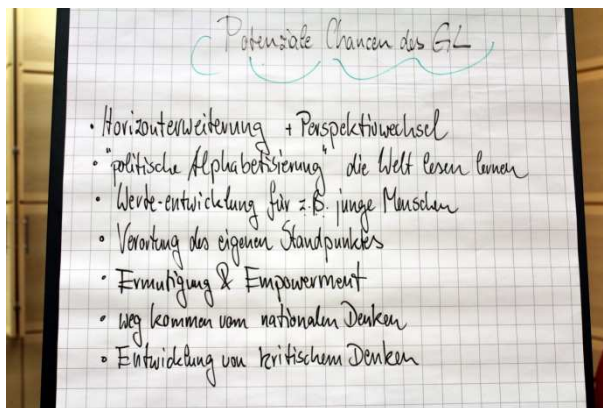 Potenziale Chancen des GL
• Horizonterweiterung + Perspektivwechsel
• "politische Alphabetisierung" die Welt lesen lernen
• Werte-entwicklung für z.B. junge Menschen
• Verortung des eigenen Standpunktes
• Ermutigung & Empowerment
• weg kommen vom nationalen Denken
• Entwicklung von kritischem Denken